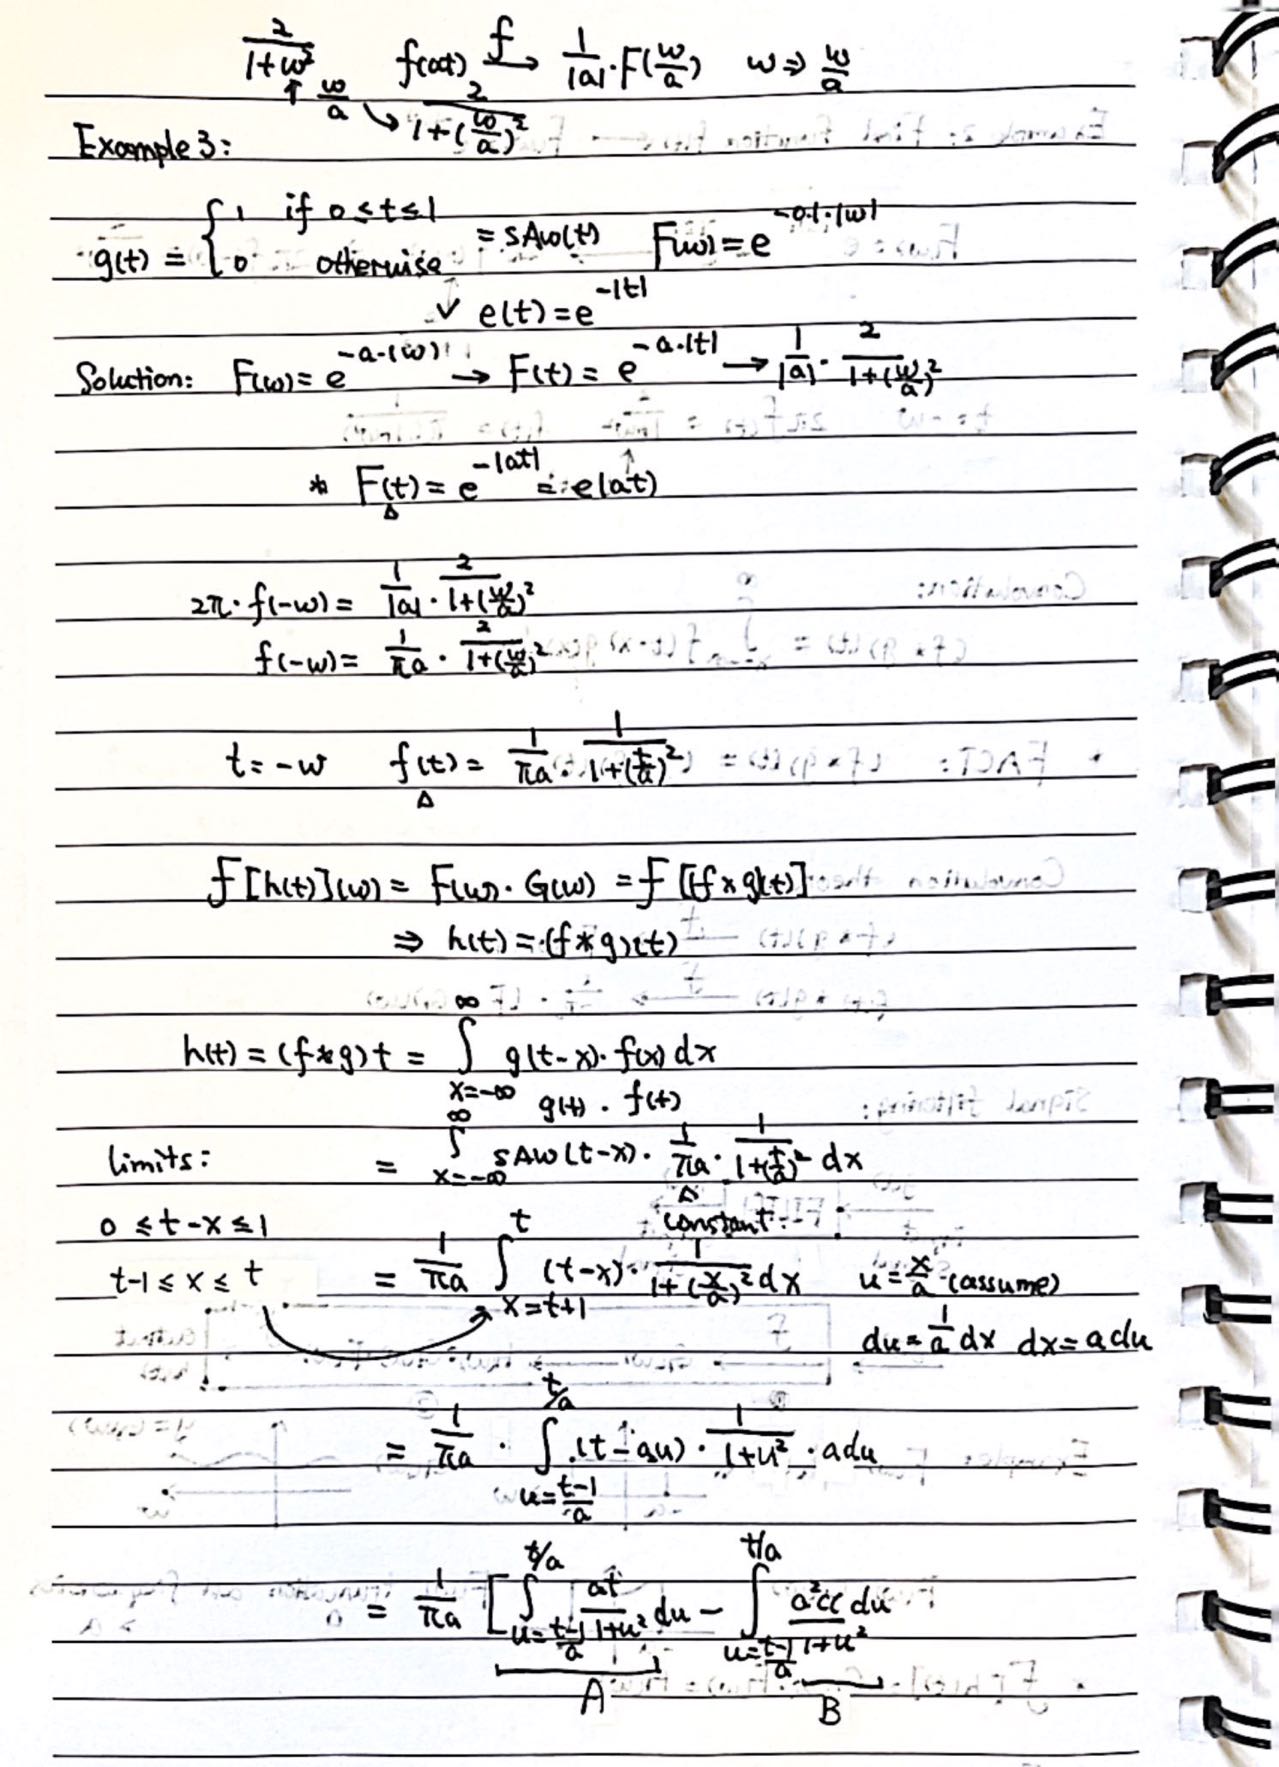 2/(1+w²) f(at) —f→ 1/|a| · F(w/a) w ⇒ w/a
↑ w/a ↘ 2/(1+(w/a)²)
Example 3:
g(t) = { 1 if 0 ≤ t ≤ 1
0 otherwise = sAw(t) F(w) = e^(-0.1·|w|)
↓ e(t) = e^(-|t|)
Solution: F(w) = e^(-a·|w|) → F(t) = e^(-a·|t|) → 1/|a| · 2/(1+(w/a)²)
* F(t) = e^(-|at|) = e(at)
2π · f(-w) = 1/|a| · 2/(1+(w/a)²)
f(-w) = 1/(πa) · 2/(1+(w/a)²)
t = -w f(t) = 1/(πa) · 1/(1+(t/a)²)
f[h(t)](w) = F(w) · G(w) = f[(f*g)(t)]
⇒ h(t) = (f*g)(t)
h(t) = (f*g)t = ∫_{x=-∞}^{∞} g(t-x) · f(x) dx
g(t) · f(t)
limits: = ∫_{x=-∞}^{∞} sAw(t-x) · 1/(πa) · 1/(1+(t/a)²) dx
0 ≤ t-x ≤ 1 constant
t-1 ≤ x ≤ t = 1/(πa) ∫_{x=t+1}^{t} (t-x) · 1/(1+(x/a)²) dx u = x/a (assume)
du = 1/a dx dx = a du
= 1/(πa) · ∫_{u=(t-1)/a}^{t/a} (t-au) · 1/(1+u²) · a du
= 1/(πa) [ ∫_{u=(t-1)/a}^{t/a} at/(1+u²) du - ∫_{u=(t-1)/a}^{t/a} a²u/(1+u²) du
A B